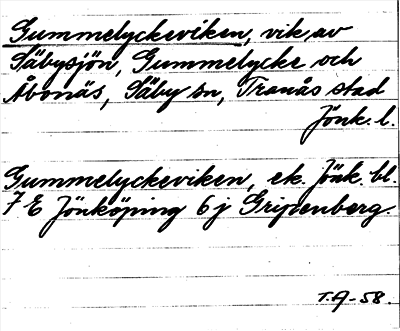 Gummelyckeviken, vik av
Säbysjön, Gummelycke och
Åbonäs, Säby sn, Tranås stad
Jönk. l.
Gummelyckeviken, ek. Jönk. bl.
7 E Jönköping 6 j Gripenberg.
T.A-58.